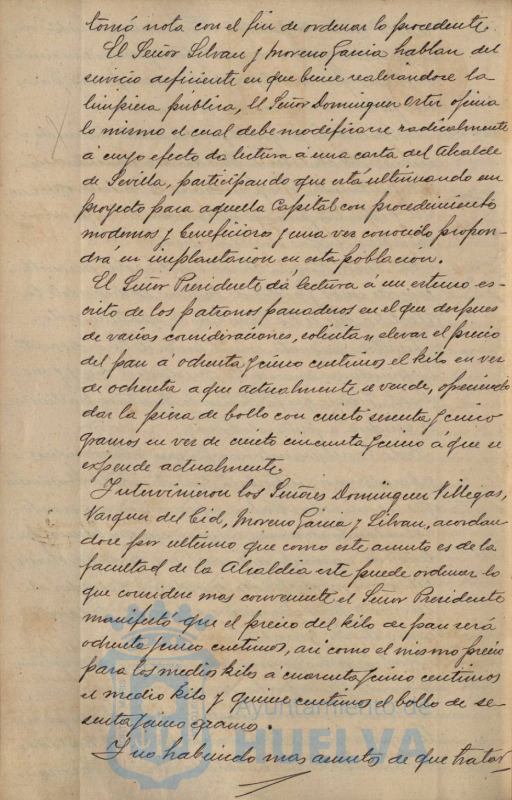 tomó nota con el fin de ordenar lo procedente.
El Señor Silvan y Moreno Garcia hablan del
servicio deficiente en que viene realizándose la
limpieza pública, el Señor Dominguez Ortiz opina
lo mismo el cual debe modificarse radicalmente
á cuyo efecto da lectura á una carta del Alcalde
de Sevilla, participando que está ultimando un
proyecto para aquella Capital con procedimiento
modernos y beneficiosos y una vez conocido propon-
drá su implantacion en esta poblacion.
El Señor Presidente dá lectura á un extenso es-
crito de los patronos panaderos en el que despues
de varias consideraciones, solicitan elevar el precio
del pan á ochenta y cinco centimos el kilo en vez
de ochenta a que actualmente se vende, ofreciendo
dar la pieza de bollo con ciento sesenta y cinco
gramos en vez de ciento cincuenta y cinco a que se
expende actualmente.
Intervinieron los Señores Dominguez Villegas,
Vazquez del Cid, Moreno Garcia y Silvan, acordan-
dose por ultimo que como este asunto es de la
facultad de la Alcaldia este puede ordenar lo
que considere mas conveniente el Señor Presidente
manifestó que el precio del kilo de pan será
ochenta y cinco centimos, asi como el mismo precio
para los medios kilo á cuarenta y cinco centimos
el medio kilo y quince centimos el bollo de se-
senta y cinco gramos.
Y no habiendo mas asuntos de que tratar
Ayuntamiento de
HUELVA